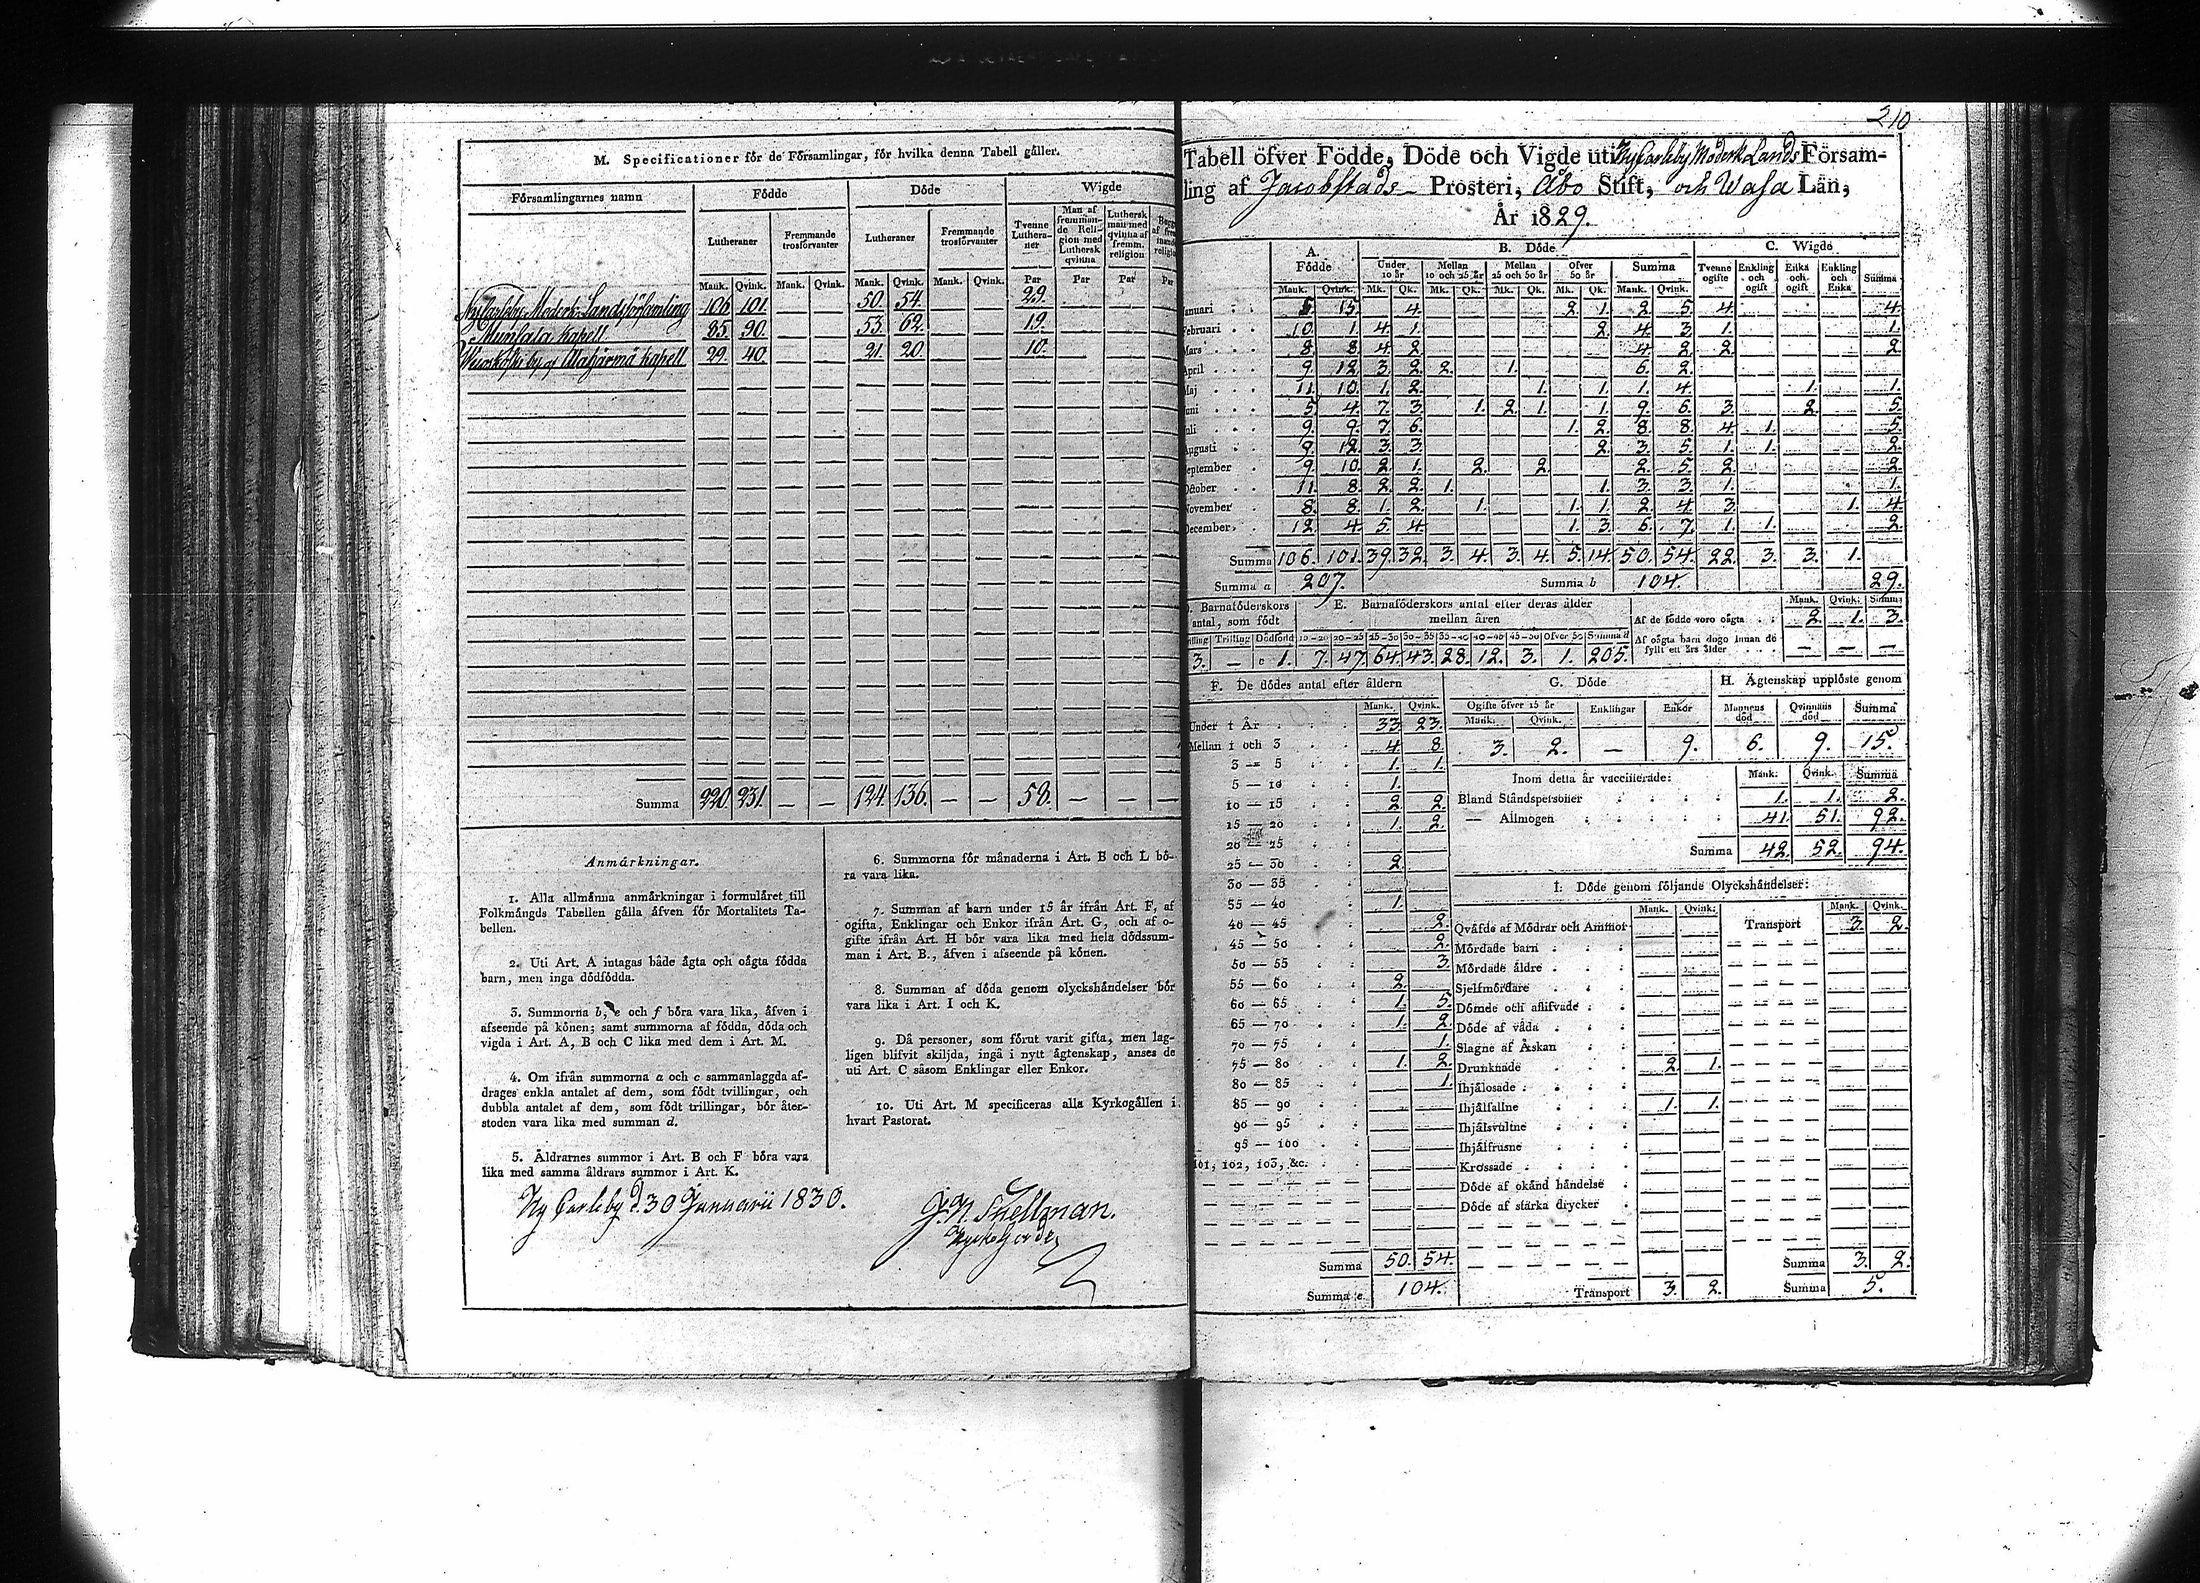 M. Specificationer för de Församlingar, för hvilka denna Tabell gäller.
Församlingarnes namn Födde Döde Wigde
Lutheraner Fremmande trosförvanter Lutheraner Fremmande trosförvanter Tvenne Lutheraner Man af fremmande Religion med Luthersk qvinna Luthersk man med qvinna af fremm. religion
Mank. Qvink. Mank. Qvink. Mank. Qvink. Mank. Qvink. Par Par Par Par
NyCarleby Moderk. Landsförsamling 106 101 50. 54. 29.
Munsala Kapell 85 90 — — 53. 62. — — 19. — — —
Alahärmä Kapell 29. 40. — — 21. 20. — — 10. — — —
Summa 220. 231. — — 124. 136. — — 58. — — —
Anmärkningar.
1. Alla allmänna anmärkningar i formuläret till
Folkmängds Tabellen gälla äfven för Mortalitets Ta-
bellen.
2. Uti Art. A intagas både ägta och oägta födda
barn, men inga dödfödda.
3. Summorna b, e och f böra vara lika, äfven i
afseende på könen; samt summorna af födda, döda och
vigda i Art. A, B och C lika med dem i Art. M.
4. Om ifrån summorna a och c sammanlaggda af-
drages enkla antalet af dem, som födt tvillingar, och
dubbla antalet af dem, som födt trillingar, bör åter-
stoden vara lika med summan d.
5. Äldrarnes summor i Art. B och F böra vara
lika med samma äldrars summor i Art. K.
6. Summorna för månaderna i Art. B och L bö-
ra vara lika.
7. Summan af barn under 15 år ifrån Art. F, af
ogifta, Enklingar och Enkor ifrån Art. G, och af o-
gifte ifrån Art. H bör vara lika med hela dödssum-
man i Art. B., äfven i afseende på könen.
8. Summan af döda genom olyckshändelser bör
vara lika i Art. I och K.
9. Då personer, som förut varit gifta, men lag-
ligen blifvit skiljda, ingå i nytt ägtenskap, anses de
uti Art. C såsom Enklingar eller Enkor.
10. Uti Art. M specificeras alla Kyrkogällen i
hvart Pastorat.
Ny Carleby d. 30 Januarii 1830.
J. N. Snellman.
Kyrkoherde
210
Tabell öfver Födde, Döde och Vigde uti NyCarleby Moderk. Lands Försam-
ling af Jacobstads Prosteri, Åbo Stift, och Wasa Län,
År 1829.
A. Födde B. Döde C. Wigde
Under 10 år Mellan 10 och 25 år Mellan 25 och 50 år Öfver 50 år Summa Tvenne ogifte Enkling och ogift Enka och ogift Enkling och Enka Summa
Mank. Qvink. Mk. Qk. Mk. Qk. Mk. Qk. Mk. Qk. Mank. Qvink.
Januari 5 15. 4. 2 1. 2 5 4. 4.
Februari 10 1. 4. 1. 2. 4. 3. 1. 1.
Mars 8. 8. 4. 2. 4. 2. 2. 2.
April 9. 12. 3. 2. 2. 1. 6. 2.
Maj 11. 10. 1. 2. 1. 1. 1. 4. 1. 1.
Juni 5. 4. 7. 3. 1. 2. 1. 1. 9. 6. 3. 2. 5.
Juli 9. 9. 7. 6. 1. 2. 8. 8. 4. 1. 5.
Augusti 9. 12. 3. 3. 2. 3. 5. 1. 1. 2.
September 9. 10. 2. 1. 2. 2. 2. 5. 2. 2.
October 11. 8. 2. 2. 1. 1. 3. 3. 1. 1.
November 8. 8. 1. 2. 1. 1. 1. 2. 4. 3. 1. 4.
December 12. 4. 5. 4. 1. 3. 6. 7. 1. 1. 2.
Summa 106. 101. 39. 32. 3. 4. 3. 4. 5. 14. 50. 54. 22. 3. 3. 1.
Summa a 207. Summa b 104. 29.
D. Barnaföderskors antal, som födt
Tvilling Trilling Dödfödd
3. — c 1.
E. Barnaföderskors antal efter deras ålder mellan åren
10-20 20-25 25-30 30-35 35-40 40-45 45-50 Öfver 50 Summa d
7. 47. 64. 43. 28. 12. 3. 1. 205.
Mank. Qvink. Summa
Af de födde voro oägta 2. 1. 3.
Af oägta barn dogo innan de fyllt ett års ålder — — —
F. De dödes antal efter åldern
Mank. Qvink.
Under 1 År 33. 23.
Mellan 1 och 3 4. 8.
3 — 5 1. 1.
5 — 10 1.
10 — 15 2. 2.
15 — 20 1. 2.
20 — 25
25 — 30 2.
30 — 35
35 — 40 1.
40 — 45 2.
45 — 50 2.
50 — 55 3.
55 — 60 2.
60 — 65 1. 5.
65 — 70 1. 2.
70 — 75 1.
75 — 80 1. 2.
80 — 85 1.
85 — 90
90 — 95
95 — 100
101, 102, 103, &c.
Summa 50. 54.
Summa e 104.
G. Döde
Ogifte öfver 15 år Enklingar Enkor
Mank. Qvink.
3. 2. — 9.
H. Ägtenskap upplöste genom
Mannens död Qvinnans död Summa
6. 9. 15.
Inom detta år vaccinerade: Mank. Qvink. Summa
Bland Ståndspersoner 1. 1. 2.
— Allmogen 41. 51. 92.
Summa 42. 52. 94.
I. Döde genom följande Olyckshändelser:
Mank. Qvink. Mank. Qvink.
Qväfde af Mödrar och Ammor Transport 3. 2.
Mördade barn
Mördade äldre
Sjelfmördare
Dömde och aflifvade
Döde af våda
Slagne af Åskan
Drunknade 2. 1.
Ihjälosade
Ihjälfallne 1. 1.
Ihjälsvultne
Ihjälfrusne
Krossade
Döde af okänd händelse
Döde af stärka drycker
Summa 3. 2.
Transport 3. 2. Summa 5.